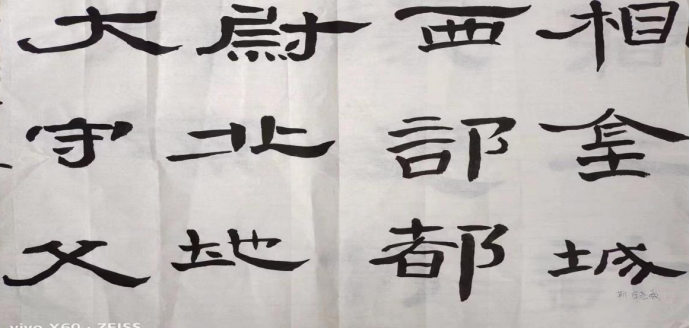 相金城
西部都
尉北地
大守父
vivo X60 · ZEISS